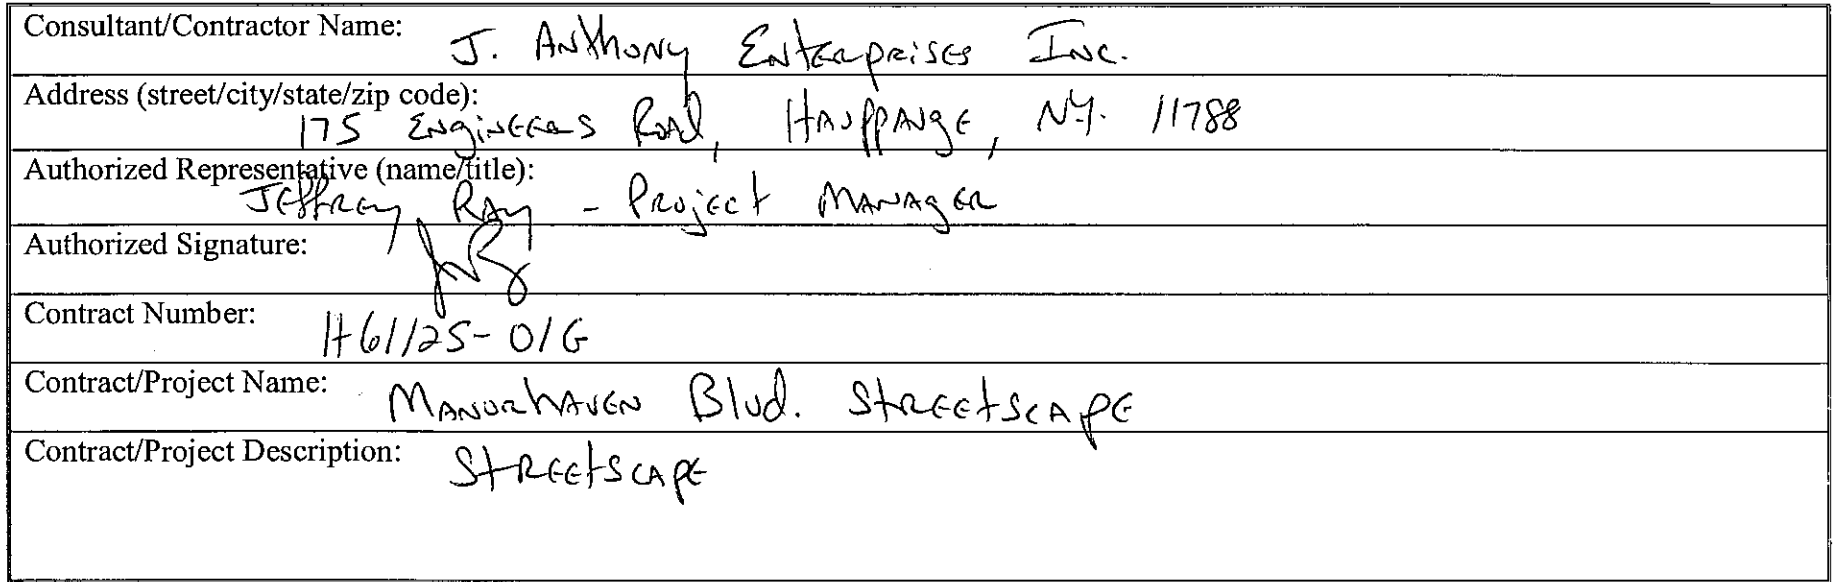 Consultant/Contractor Name: J. Anthony Enterprises Inc.
Address (street/city/state/zip code):
175 Engineers Road, Hauppauge, NY. 11788
Authorized Representative (name/title):
Jeffrey Ray - Project Manager
Authorized Signature:
Contract Number: H61125-01G
Contract/Project Name: Manorhaven Blvd. Streetscape
Contract/Project Description: Streetscape